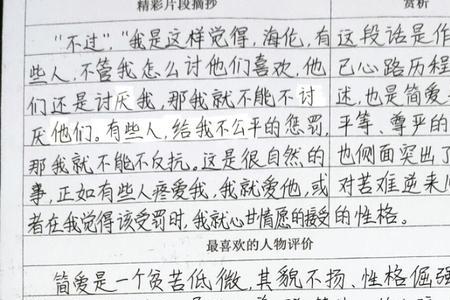 精彩片段摘抄 赏析
"不过","我是这样觉得,海伦,有 这段话是作
些人,不管我怎么讨他们喜欢,他 己心路历程
们还是讨厌我,那我就不能不讨 迷,也是简爱
厌他们。有些人,给我不公平的惩罚, 平等、尊严的
那我就不能不反抗。这是很自然的 也侧面突出了
事,正如有些人疼爱我,我就爱他,或 对苦难逆来
者在我觉得该受罚时,我就心甘情愿的接受 的性格。
最喜欢的人物评价
简爱是一个贫苦低微,其貌不扬、性格倔强